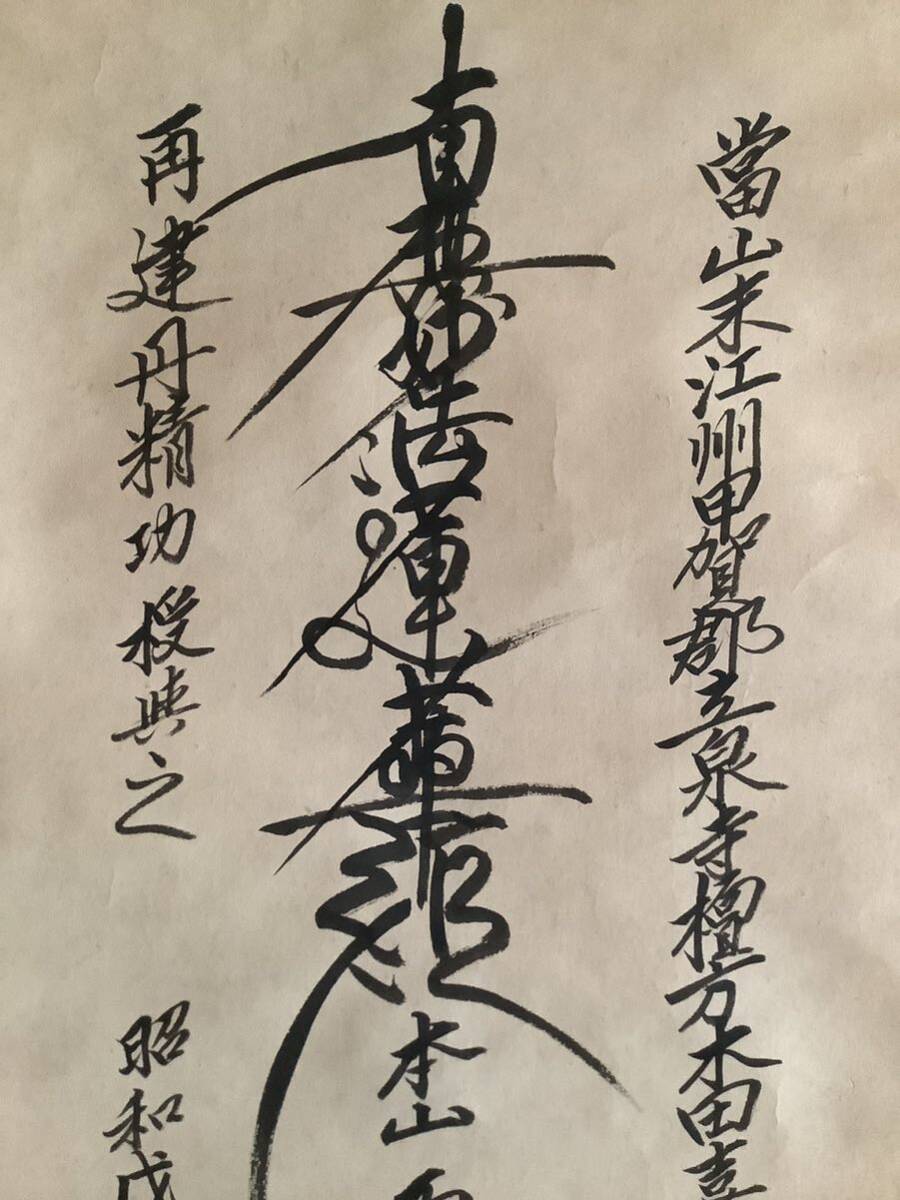 當山末江州甲賀郡立泉寺檀方木田喜
南無妙法蓮華経 本山
再建丹精功授與之 昭和戊